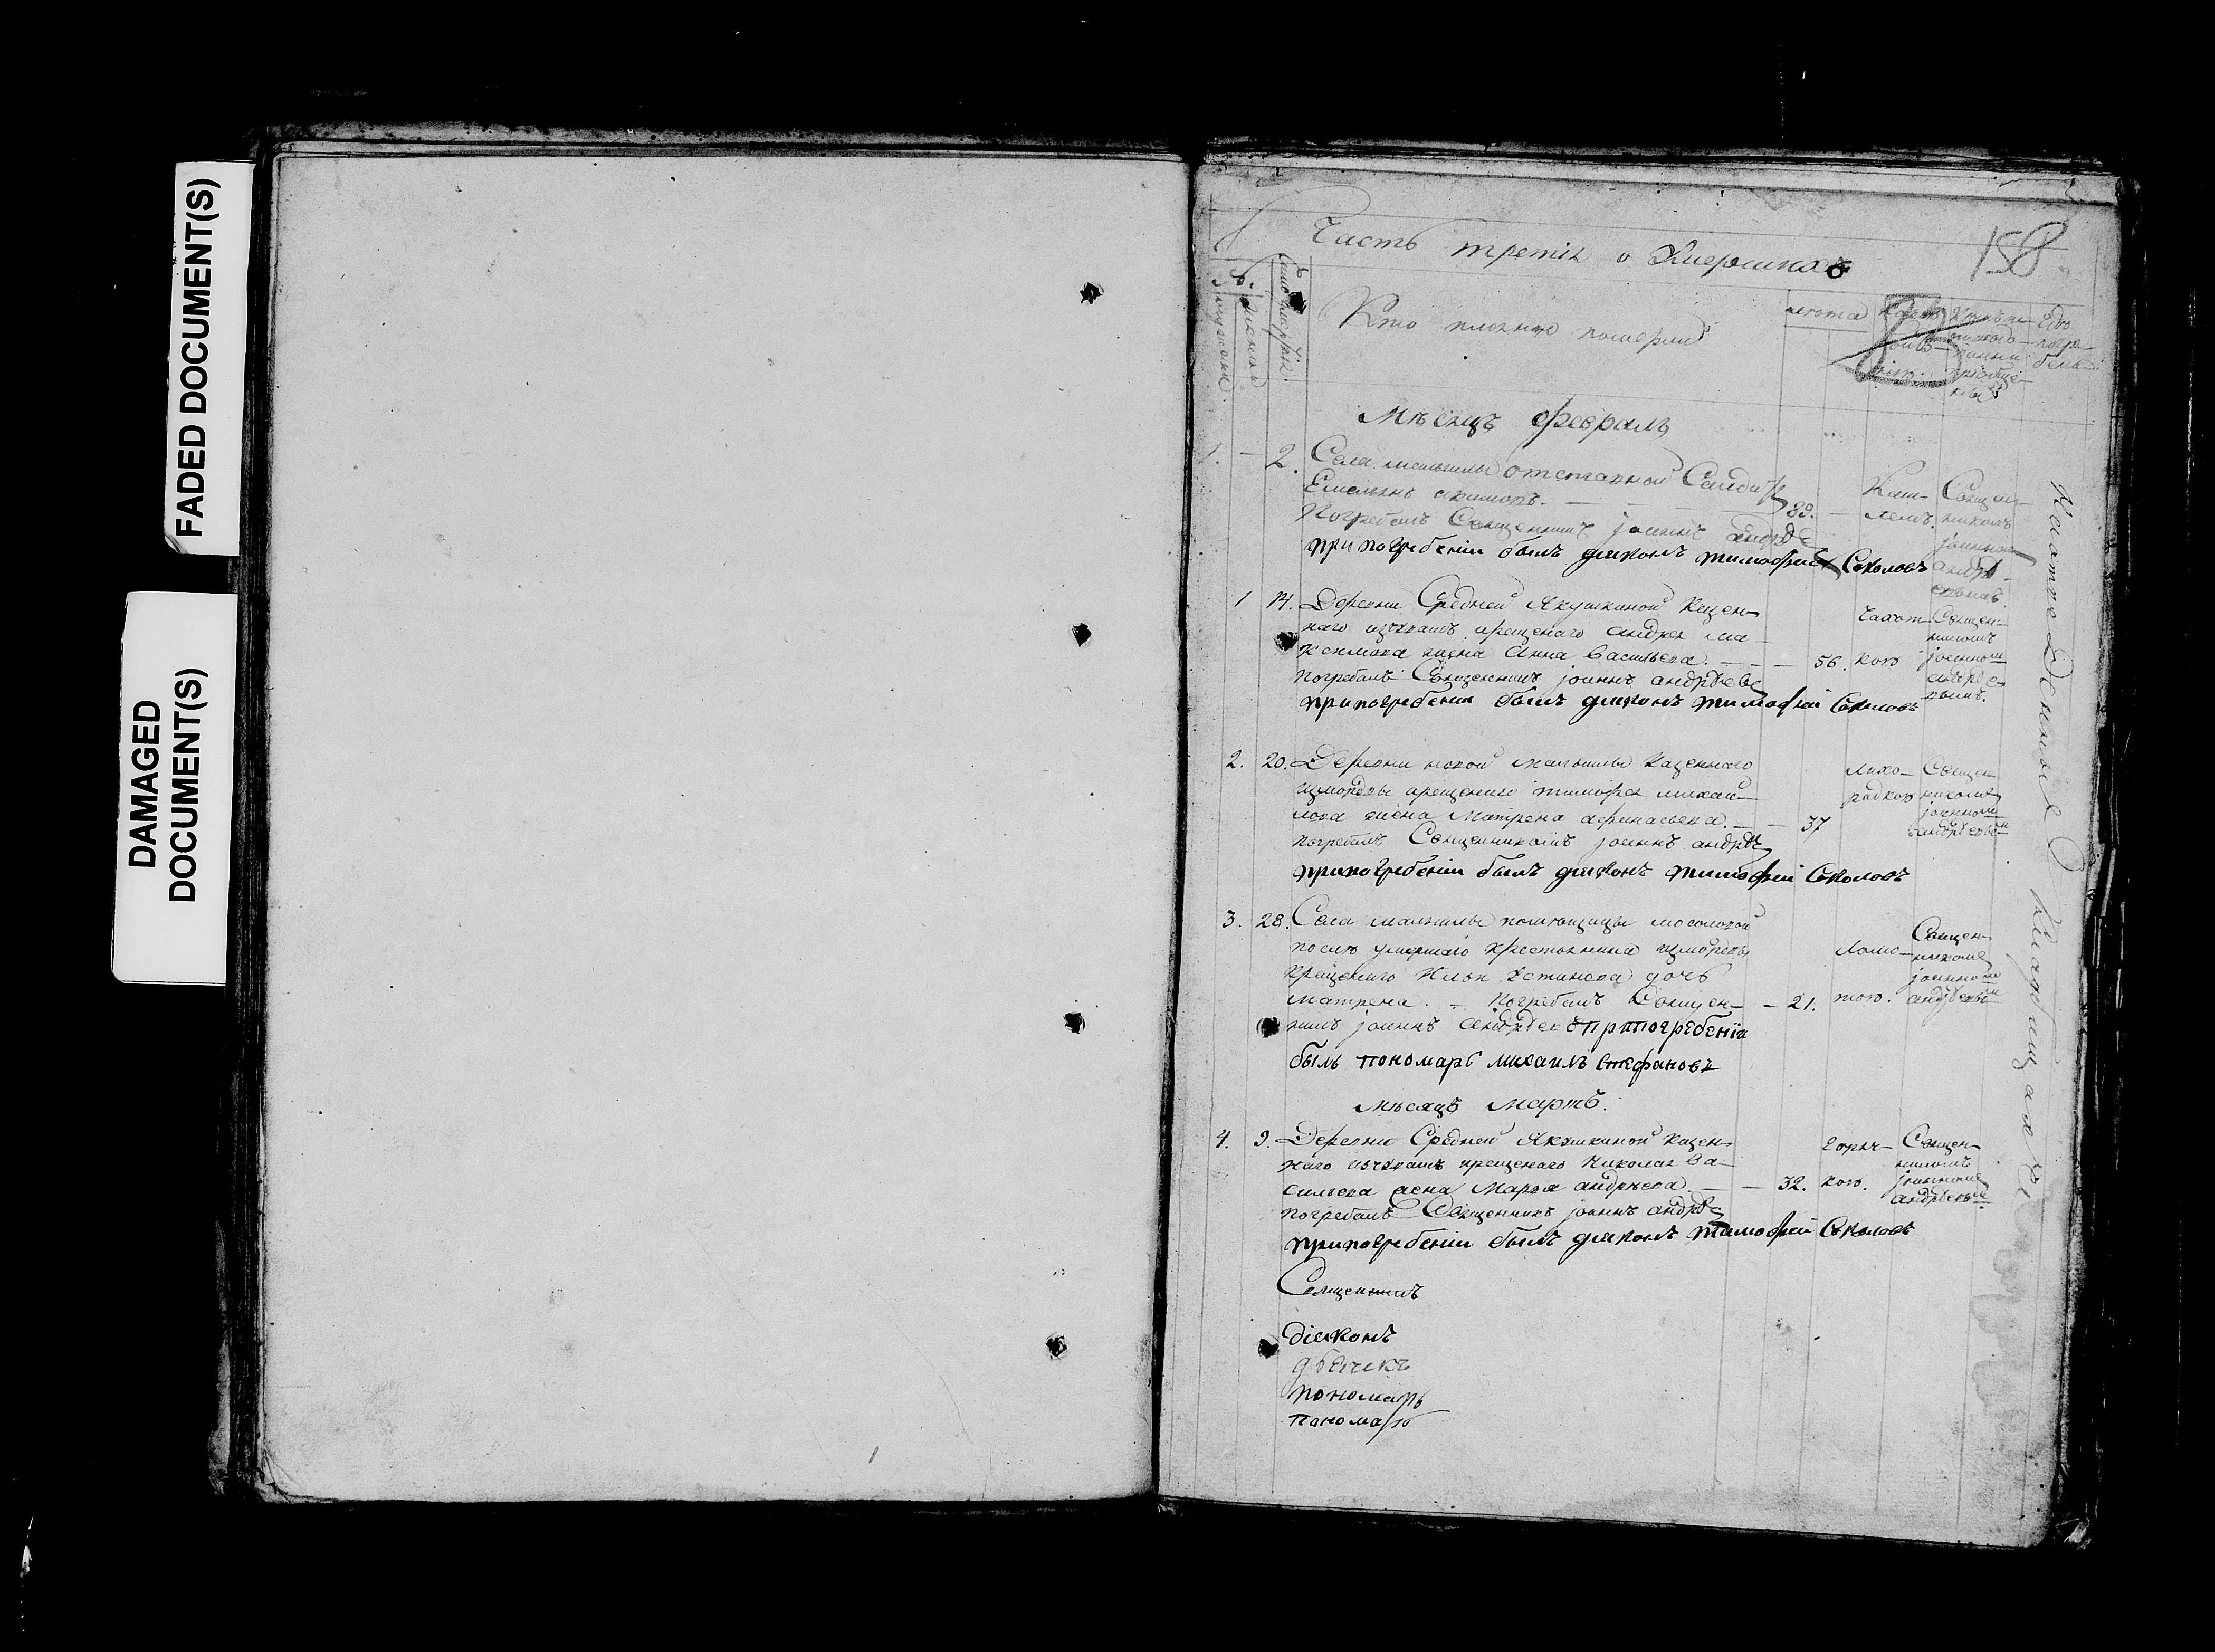 FAADED DOCUMENT(S)
DAMAGED
DOCUMENT(S)
Часть третія о Умершихъ
158
№.
мужеска
женска
Число
Кто имянно померли
лета
Кѣмъ
Гдѣ
погре-
бены
Мѣсяцъ февраль
1. - 2. Села отставной Салдатъ
Емельянъ 89.
Погребалъ Священникъ іоаннъ андре
при погребеніи былъ диаконъ тимофей Соколовъ
Каш-
лемъ.
Священ-
никомъ
іоанном
андре-
евымъ
1 14. Деревни Средней Якушкиной Казен-
наго изчувашъ крещенаго андрея ма-
ксимова жена Анна Васильева. - - - 56.
погребалъ Священникъ іоаннъ андреевъ
при погребеніи былъ диаконъ тимофей Соколовъ
Чахот-
кою
Священ-
никомъ
іоанномъ
андрее-
вымъ.
2. 20. Деревни новой Казеннаго
измордвы крещенаго тимофея михай-
лова жена Матрена афанасьева. - - 37
погребалъ Священникъ іоаннъ андре
при погребеніи былъ диаконъ тимофей Соколовъ
Лихо-
радкою
Священ-
никомъ
іоанномъ
андреевы
3. 28. Села помещицы мосоловой
после умершаго крестьянина измордвы
крещенаго Ильи Устинова дочь
матрена. - Погребалъ Священ- - 21.
никъ іоаннъ андреевъ при погребеніи
былъ пономарь михаилъ стефановъ
Ломо-
тою.
Священ-
никомъ
іоанномъ
андреевы
Мѣсяцъ Мартъ.
4. 9. Деревни Средней Якушкиной казен-
наго изчувашъ крещенаго Николая Ва-
сильева жена Марья андреева. - - 32.
погребалъ Священникъ іоаннъ андре
при погребеніи былъ диаконъ тимофей Соколовъ
Горяч-
кою.
Священ-
никомъ
іоанномъ
андреевым
Священникъ
діаконъ
дьячекъ
пономарь
пономарь
На отведенныя Кладбищахъ